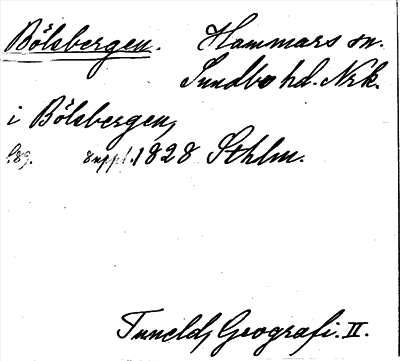 Bölsbergen. Hammars sn.
Sundbo hd. Nrk.
i Bölsbergen,
s. 89. 8 uppl. 1828 Sthlm.
Tunelds Geografi. II.